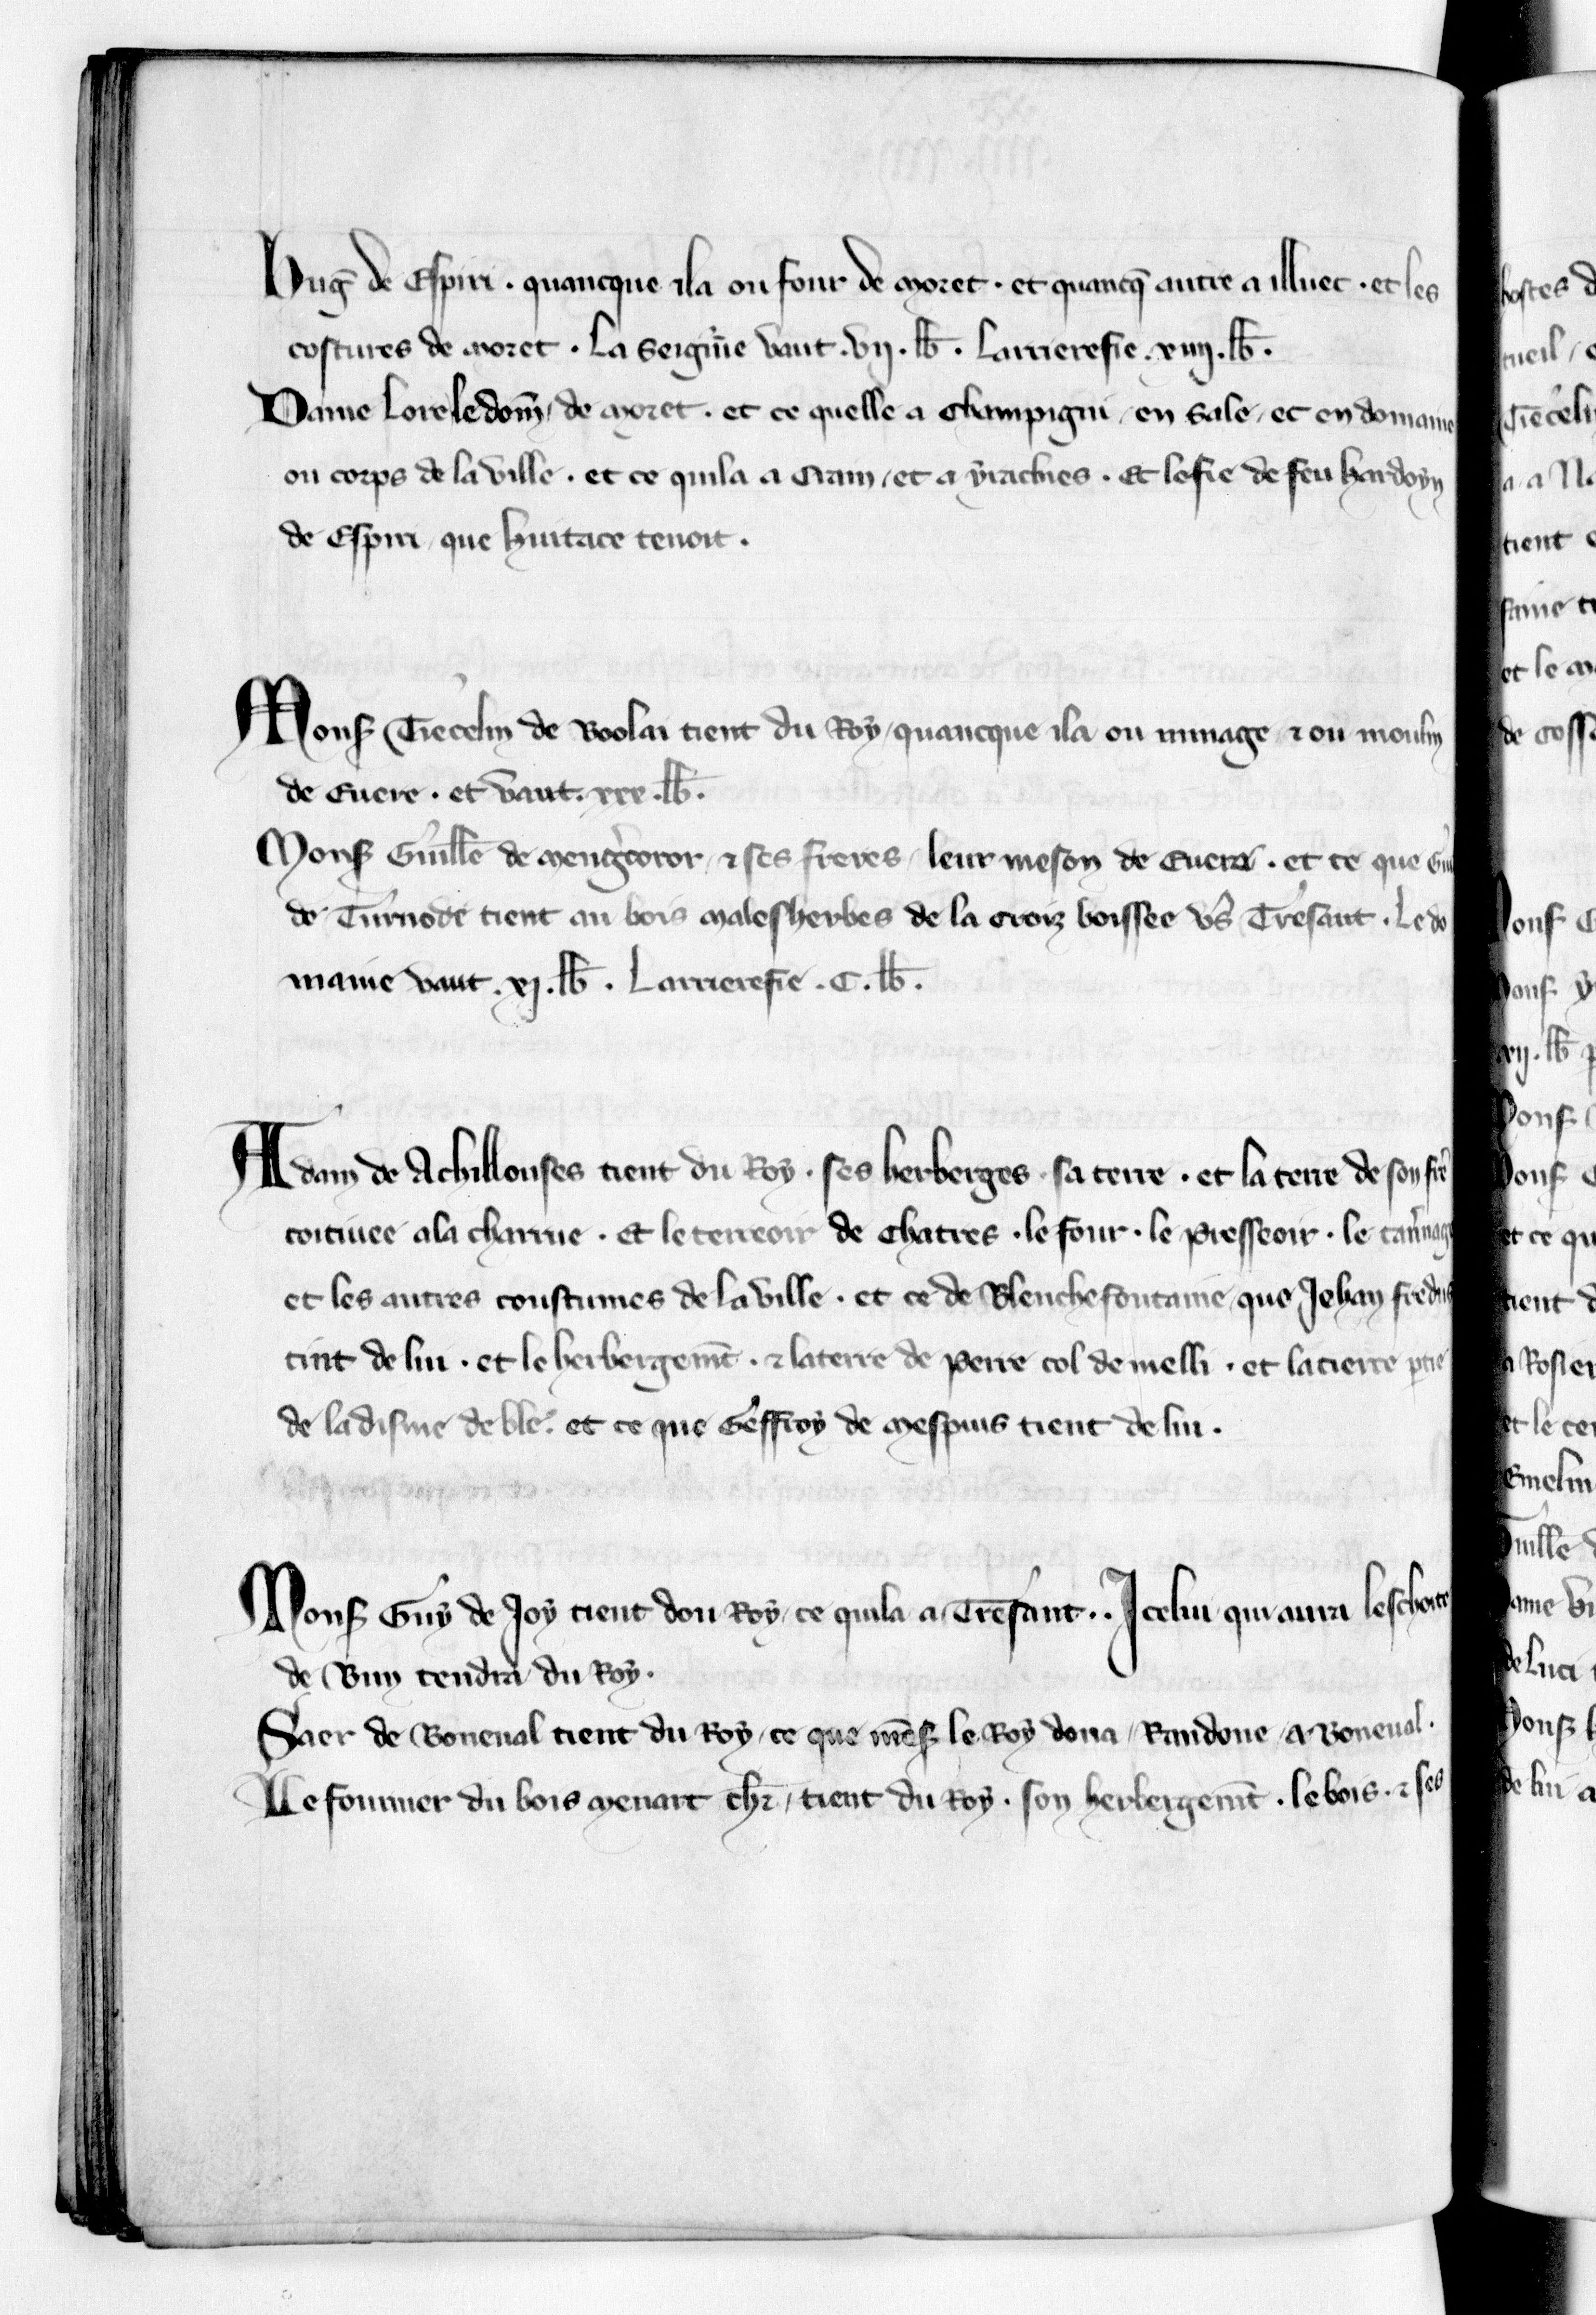 Hug̃ de Espiri . quancque ila ou four de moret . et quancq̃ autre a illuec . et les
costures de moret . La Seigñie vaut .vij. lb̃ . Larrierefie .xiiij. lb̃ .
Dame Lore le dom̃ / de moret . et ce quelle a Champigni / en sale / et en domaine
ou corps de la ville . et ce quila a Cram / et a yrachies . Et lefie de feu hardoyn
de Espiri / que huitace tenoit .
Monſ Trecelin de Boolai tient du Roy / quancque ila ou minage / ⁊ ou moulin
de Evere . et vaut . xxx .lb̃.
Monſ Guill̃e de / ⁊ ses freres / leur meson de Evera . et ce que
de tient au bois malesherbes de la croiz boissee vs̃ Tresant . Le do
maine vaut . xj . lb̃ . Larrierefie . C . lb̃ .
Adam de Achillouses tient du Roy . ses herberges . sa terre . et la terre de son fre
coitivee ala charrue . Et le terreoir de Chatres . le four . le presseoir . le
et les autres coustumes de la ville . et ce de Blenchefontaine / que Jehan
tint de lui . et le herbergem̃t . ⁊ laterre de perre col de melli . et la tierce ptie
de ladisme de ble. et ce que Geffroy de mespuis tient de lui .
Monſ Guy de Joy tient dou Roy / ce quila a Tresant . . Icelui qui aura leschoite
de Buy tendra du Roy .
Saer de Boneval tient du Roy / ce que mẽſ le Roy dona / Randone / a Boneval .
Le fournier du bois menart chr̃ / tient du Roy . son herbergem̃t . le bois . ⁊ ses